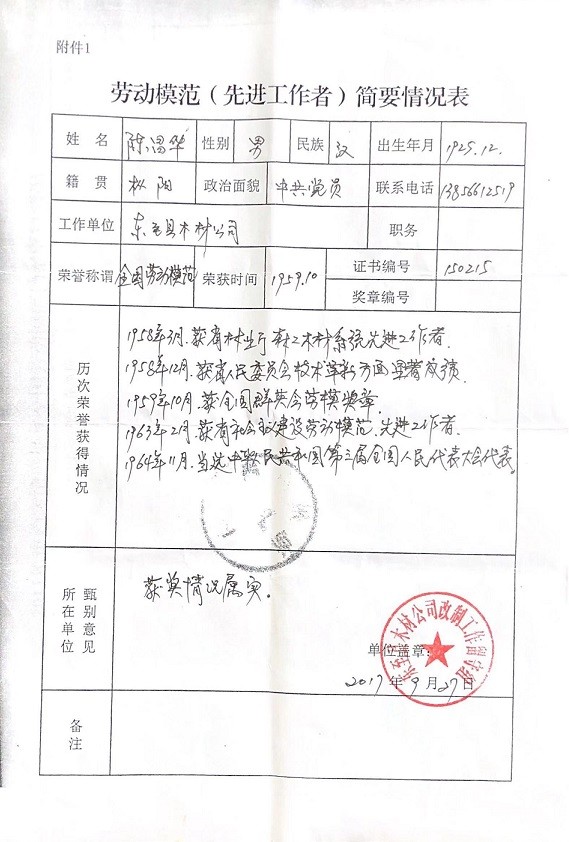 附件1
劳动模范（先进工作者）简要情况表
姓名 陈昌华 性别 男 民族 汉 出生年月 1925.12.
籍贯 枞阳 政治面貌 中共党员 联系电话 13856612519
工作单位 东至县木材公司 职务
荣誉称谓 全国劳动模范 荣获时间 1959.10 证书编号 150215
奖章编号
历次荣誉获得情况
1958年3月.获省林业厅森工木材系统先进工作者.
1958年12月.获省人民委员会技术革新方面显著成绩.
1959年10月.获全国群英会劳模奖章.
1963年2月.获省社会主义建设劳动模范.先进工作者.
1964年11月.当选中华人民共和国第三届全国人民代表大会代表.
所在单位甄别意见
获奖情况属实。
东至县木材公司改制工作留守组
单位盖章：
2017年9月27日
备注